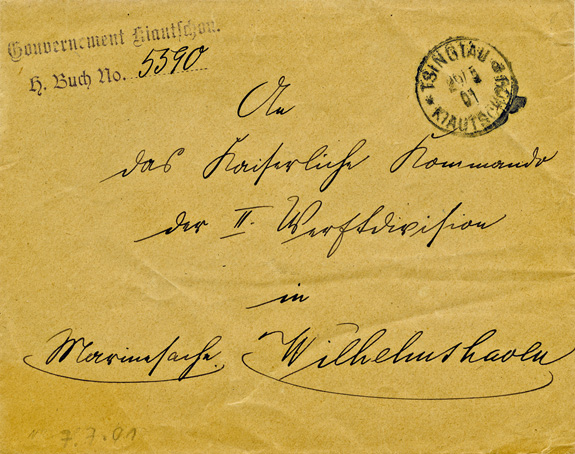 Gouvernement Kiautschou.
H. Buch No. 5390
TSINGTAU
26/5
01
KIAUTSCHOU
An
das Kaiserliche Kommando
der II. Werftdivision
in
Marinesache. Wilhelmshaven
7.7.01